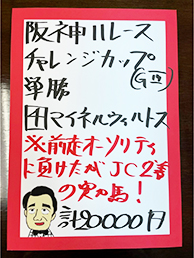 阪神11レース
チャレンジカップ
(GⅢ)
単勝
④マイネルウィルトス
※前走オーソリティ
に負けたがJC2着
の実力馬!
計20000円